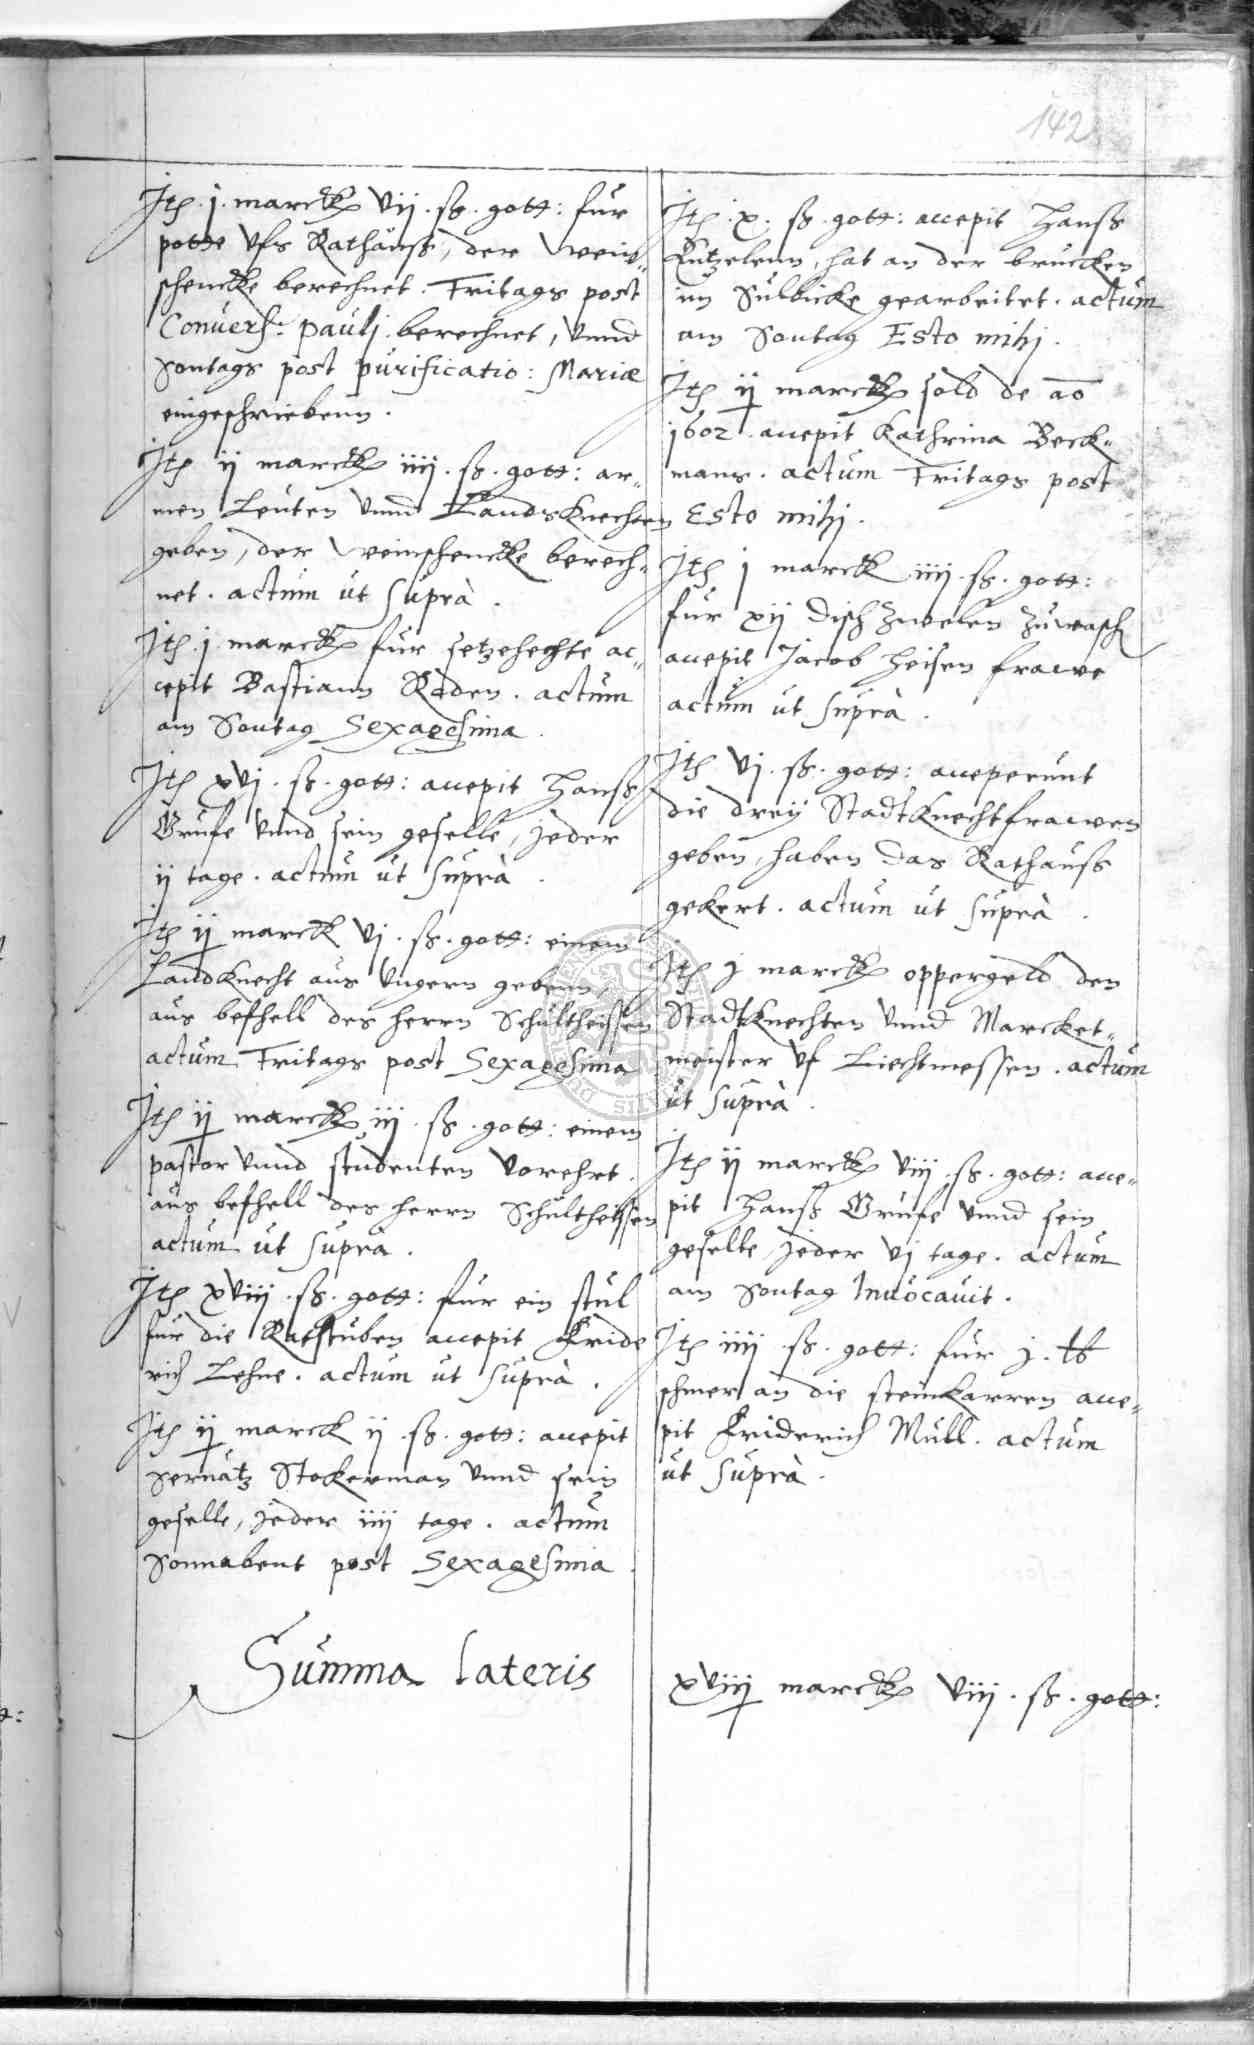 142
Jtē .j. marck vij . ß . gott: fur
potte vfs Rathauß, der Wein„
schencke berechnet. Fritags post
Conuers: Paulj berechnet, vnnd
Sontags post purificatio: Mariæ
eingeschriebenn.
Jtē ij marck iiij . ß . gott: ar„
men Leuten vnnd Landsknechten
geben, der Weinschencke berech„
net. actum ut suprà.
Jtē .j. marck fur setzehechte ac„
cepit Bastiann Röden. actum
am Sontag Sexagesima.
Jtē xvj . ß . gott: accepit Hanß
Grufe vnnd sein geselle, jeder
ij tage. actum ut suprà.
Jtē ij marck vj . ß . gott: einem
Landknecht aus Vngern gebenn,
aus befhell des herrn Schultheissen
actum Fritags post Sexagesima
Jtē ij marck iij . ß . gott: einem
pastor vnnd studenten vorehrt.
aus befhell des herrn Schultheissen
actum ut suprà.
Jtē xviij . ß . gott: fur ein stul
fur die Ratstuben accepit Fride
rich Lehne. actum ut suprà.
Jtē ij marck ij . ß . gott: accepit
Seruatz Stokerman vnnd sein
geselle, jeder iiij tage. actum
Sonnabent post Sexagesima.
Jtē .x. ß . gott: accepit Hanß
Lutzelenn, hat an der brucken
im Sulbicke gearbeitet. actum
am Sontag Esto mihj.
Jtē ij marck sold de ao
1602. accepit Kathrina Beck„
mans. actum Fritags post
Esto mihj.
Jtē j marck iiij . ß . gott:
fur xij disch zwelen zuwasch
accepit Jacob Heisen frawe
actum ut suprà.
Jtē vj . ß . gott: acceperunt
die dreÿ Stadtknechtfrawen
geben, haben das Rathauß
gekert. actum ut suprà.
Jtē j marck oppergeld den
Stadtknechten vnnd Marcket„
meister vf Liechtmessen. actum
ut suprà.
Jtē ij marck viij . ß . gott: acce„
pit Hanß Grufe vnnd sein
geselle, jeder vj tage. actum
am Sontag Inuocauit.
Jtē iiij . ß . gott: fur j . lb
schmer an die steinkarren acce„
pit Friderich Mull. actum
ut suprà.
Summa lateris
xviij marck viij . ß . gott: